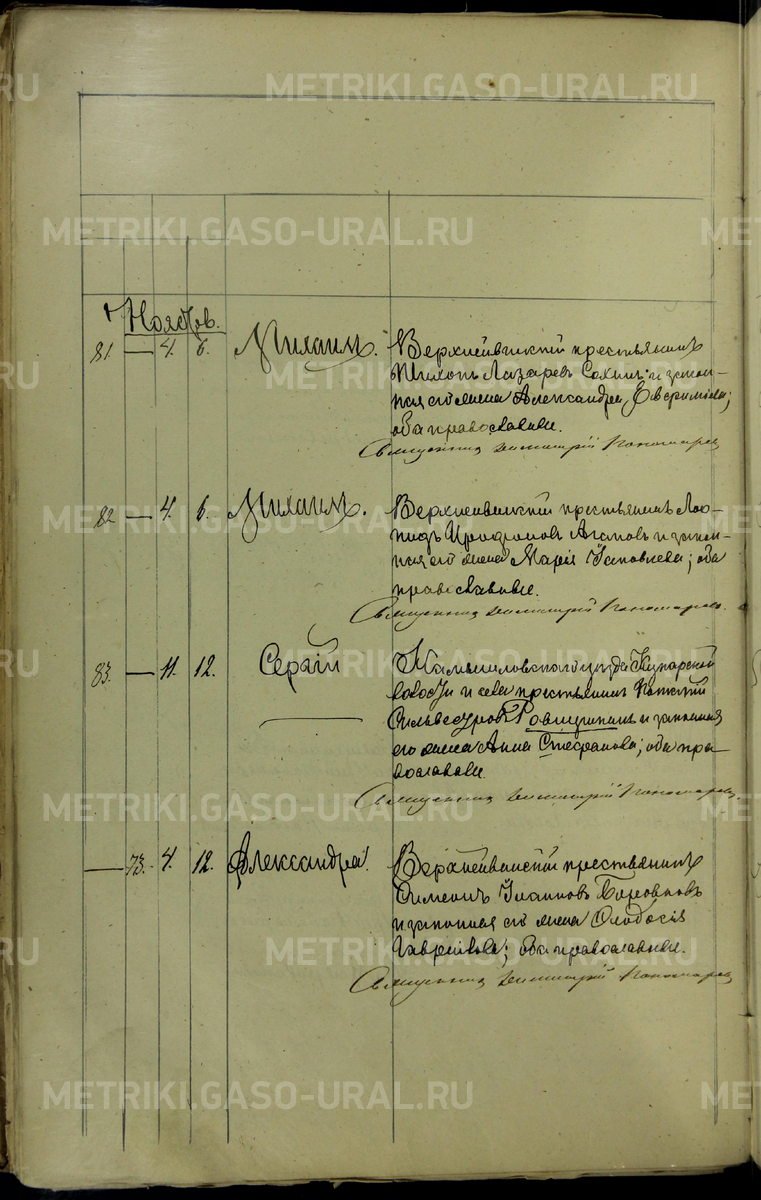 METRIKI.GASO-URAL.RU
Ноябрь.
81 — 4. 6. Михаилъ. Верхнейвинскій крестьянинъ
Тихонъ Лазаревъ Сахинъ и закон-
ная его жена Александра Евфимова;
оба православные.
Священникъ Димитрій Пономаревъ
82 — 4. 6. Михаилъ. Верхнейвинскій крестьянинъ Лео-
нидъ Иродіоновъ Агаповъ и закон-
ная его жена Марія Іаковлева; оба
православные.
Священникъ Димитрій Пономаревъ.
83. — 11. 12. Сергій Камышловскаго уѣзда Кунарской
волости и села крестьянинъ
Сильвестровъ и законная
его жена Анна Стефанова; оба пра-
вославные.
Священникъ Димитрій Пономаревъ.
— 73. 4. 12. Александра. Верхнейвинскій крестьянинъ
Симеонъ Іоанновъ Боровковъ
и законная его жена Ѳеодосія
Гаврилова; оба православные.
Священникъ Димитрій Пономаревъ